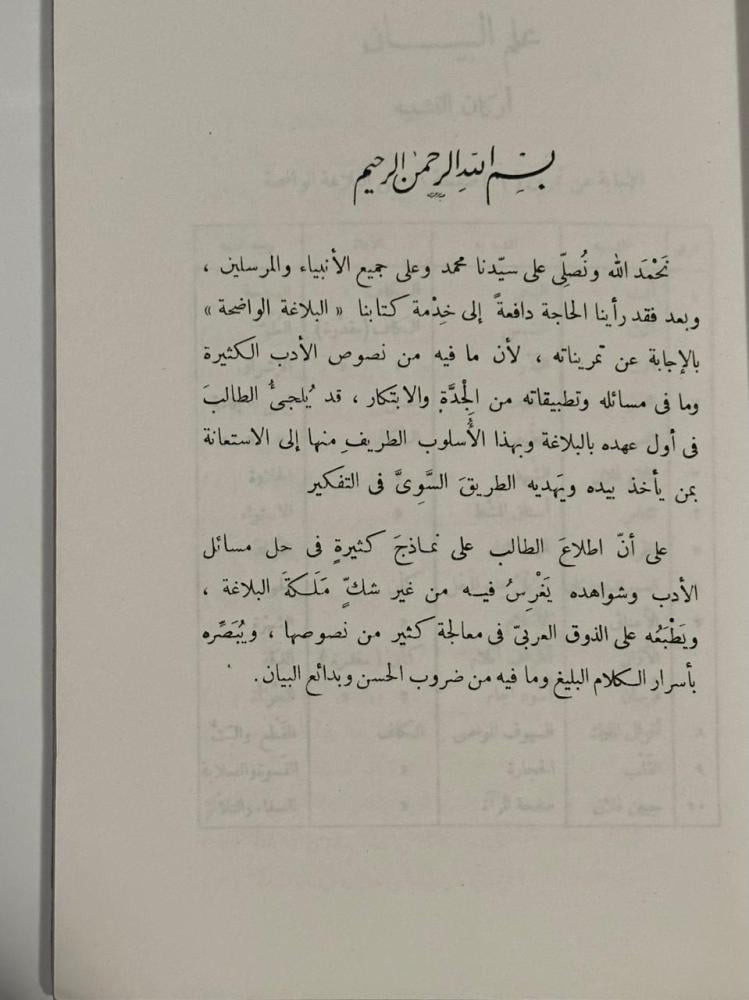 بسم الله الرحمن الرحيم
نَحْمَدَ الله ونُصلِّى على سيّدنا محمد وعلى جميع الأنبياء والمرسلين ،
وبعد فقد رأينا الحاجة دافعةً إلى خِدْمة كتابنا « البلاغة الواضحة »
بالإجابة عن تمريناته ، لأن ما فيه من نصوص الأدب الكثيرة
وما فى مسائله وتطبيقاته من الْجِدَّةِ والابتكار ، قد يُلجئُ الطالبَ
فى أول عهده بالبلاغة وبهذا الأُسلوب الطريفِ منها إلى الاستعانة
بمن يأخذ بيده ويَهديه الطريقَ السَّوِىَّ فى التفكير
على أنّ اطلاعَ الطالب على نماذجَ كثيرةٍ فى حل مسائل
الأدب وشواهده يَغْرِسُ فيه من غير شكٍّ مَلَكَةَ البلاغة ،
ويَطْبَعُه على الذوق العربىّ فى معالجة كثير من نصوصها ، ويُبَصِّره
بأسرار الكلام البليغ وما فيه من ضروب الحسن وبدائع البيان .